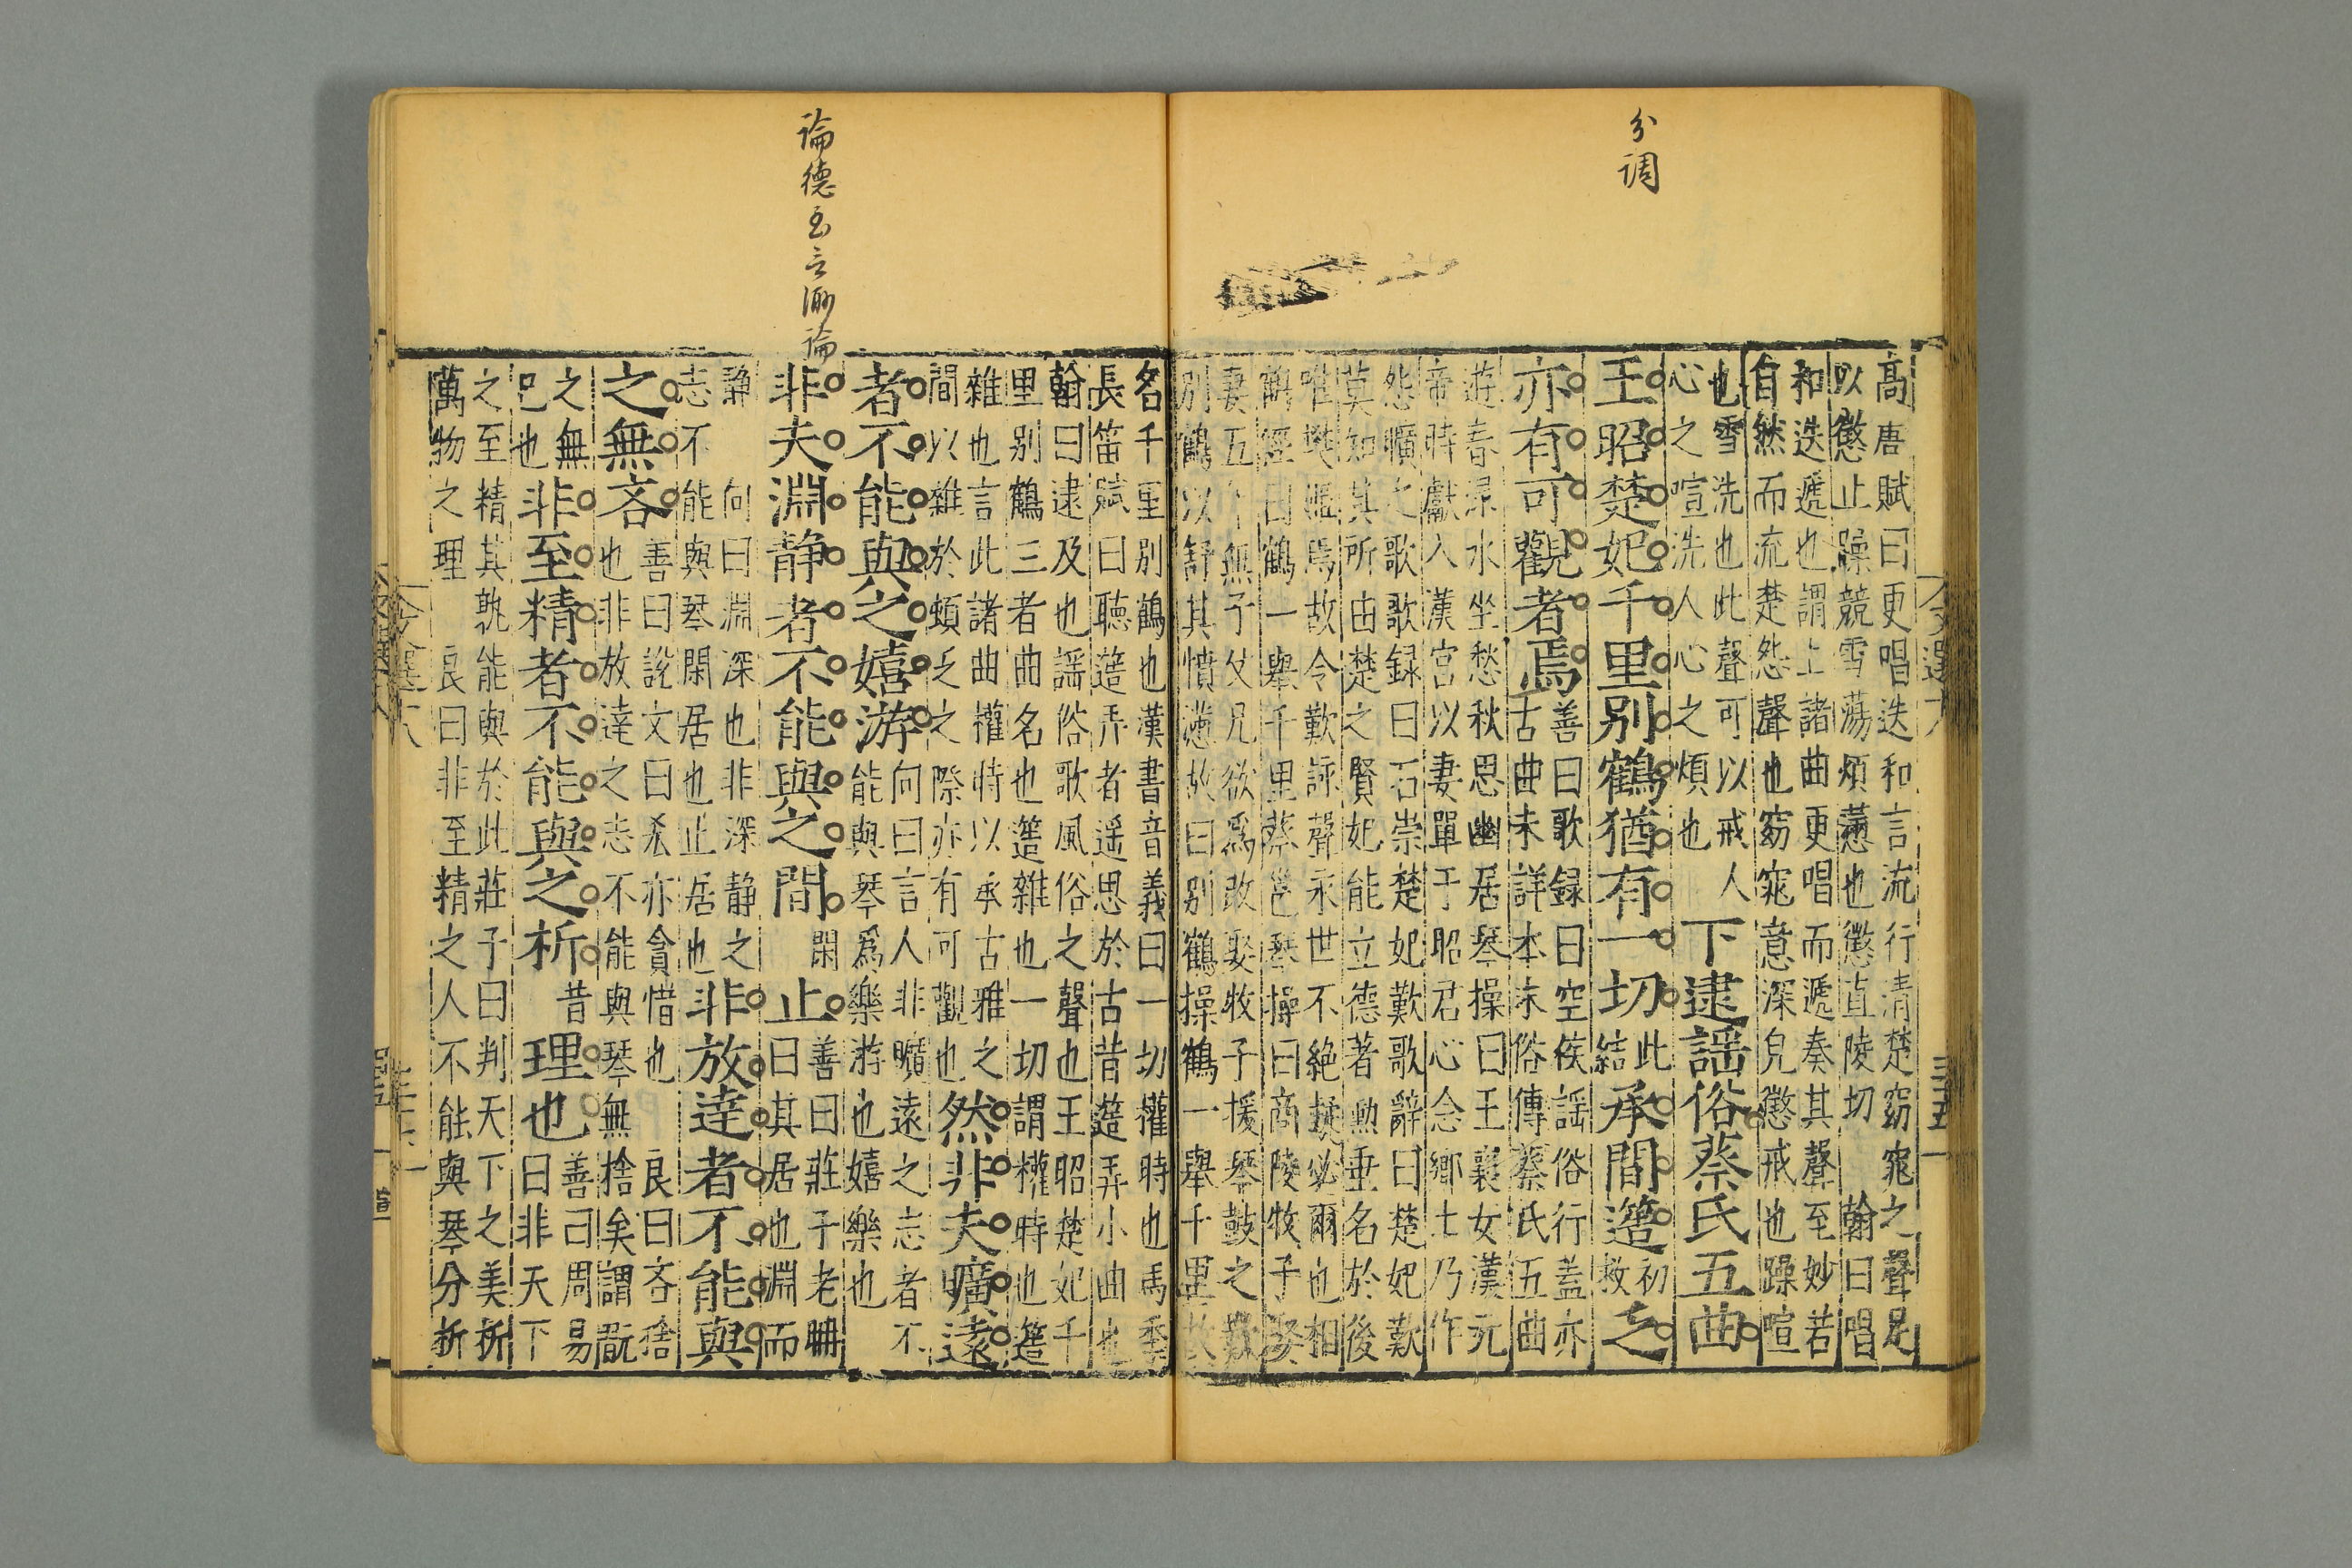 分调
高唐賦曰更唱迭和言流行清楚窈窕之聲足
以懲止躁競雪蕩煩懣也懲直陵切 翰曰唱
和迭遞也謂上諸曲更唱而遞奏其聲至妙若
自然而流楚怨聲也窈窕意深皃懲戒也躁喧
也雪洗也此聲可以戒人
心之喧洗人心之煩也
下逮謡俗蔡氏五曲
王昭楚妃千里别鶴猶有一切此結承間簉初救乏
亦有可觀者焉
善曰歌録曰空侯謡俗行蓋亦
古曲未詳本末俗傳蔡氏五曲
遊春渌水坐愁秋思幽居琴操曰王襄女漢元
帝時獻入漢宫以妻單于昭君心念鄉土乃作
怨曠之歌歌録曰石崇楚妃歎歌辭曰楚妃歎
莫知其所由楚之賢妃能立德著勲垂名於後
唯樊姬焉故令歎詠聲永世不絶疑必爾也相
鶴經曰鶴一舉千里蔡邕琴操曰商陵牧子娶
妻五年無子父兄欲爲改娶牧子援琴鼓之歎
别鶴以舒其憤懣故曰别鶴操鶴一舉千里故
論德至言渺論
名千里别鶴也漢書音義曰一切權時也馬季
長笛賦曰聽簉弄者遥思於古昔簉弄小曲也
翰曰逮及也謡俗歌風俗之聲也王昭楚妃千
里别鶴三者曲名也簉雜也一切謂權時也簉
雜也言此諸曲權時以承古雅之
間以雜於煩乏之際亦有可觀也
然非夫曠遠
者不能與之嬉游
向曰言人非曠遠之志者不
能與琴爲樂游也嬉樂也
非夫淵静者不能與之間閑止
善曰莊子老聃
曰其居也淵而
静 向曰淵深也非深静之
志不能與琴閑居也止居也
非放達者不能與
之無吝
善曰說文曰吝亦貪惜也 良曰吝捨
也非放達之志不能與琴無捨矣謂翫
之無
已也
非至精者不能與之析昔理也
善曰周易
曰非天下
之至精其孰能與於此莊子曰判天下之美析
萬物之理 良曰非至精之人不能與琴分析